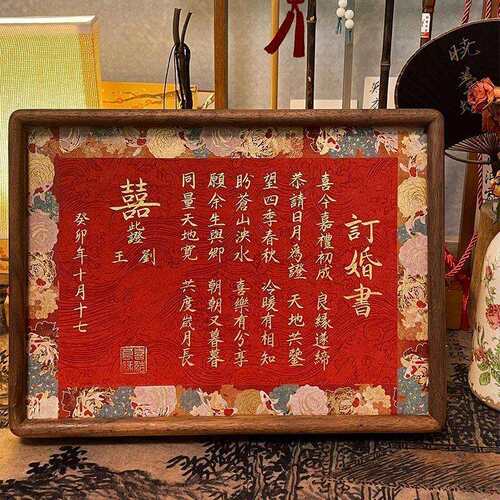 訂婚書
喜今嘉禮初成 良緣遂締
恭請日月為證 天地共鑒
望四季春秋 冷暖有相知
盼蒼山泱水 喜樂有分享
願余生與卿 朝朝又暮暮
同量天地寬 共度歲月長
囍
此證
劉
王
癸卯年十月十七